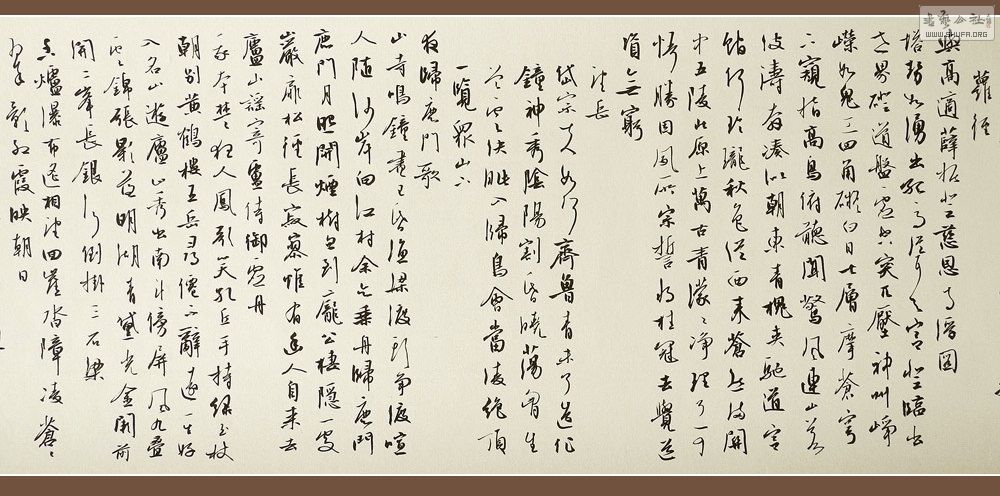 蘿徑
與高適薛據登慈恩寺浮圖
塔勢如湧出孤高聳天宮登臨出
世界磴道盤虛空突兀壓神州崢
嶸如鬼工四角礙白日七層摩蒼穹
下窺指高鳥俯聽聞驚風連山若
波濤奔湊似朝東青槐夾馳道宮
館何玲瓏秋色從西來蒼然滿關
中五陵北原上萬古青濛濛淨理了可
悟勝因夙所宗誓將挂冠去覺道
資無窮
望岳
岱宗夫如何齊魯青未了造化
鐘神秀陰陽割昏曉蕩胸生
曾雲決眥入歸鳥會當凌絕頂
一覽眾山小
夜歸鹿門歌
山寺鳴鐘晝已昏漁梁渡頭爭渡喧
人隨沙岸向江村余亦乘舟歸鹿門
鹿門月照開煙樹忽到龐公棲隱處
巖扉松徑長寂寥惟有幽人自來去
廬山謠寄盧侍御虛舟
我本楚狂人鳳歌笑孔丘手持綠玉杖
朝別黃鶴樓五岳尋僊不辭遠一生好
入名山遊廬山秀出南斗傍屏風九疊
雲錦張影落明湖青黛光金闕前
開二峰長銀河倒掛三石梁
香爐瀑布遙相望回崖沓嶂凌蒼蒼
翠影紅霞映朝日
書藝公社